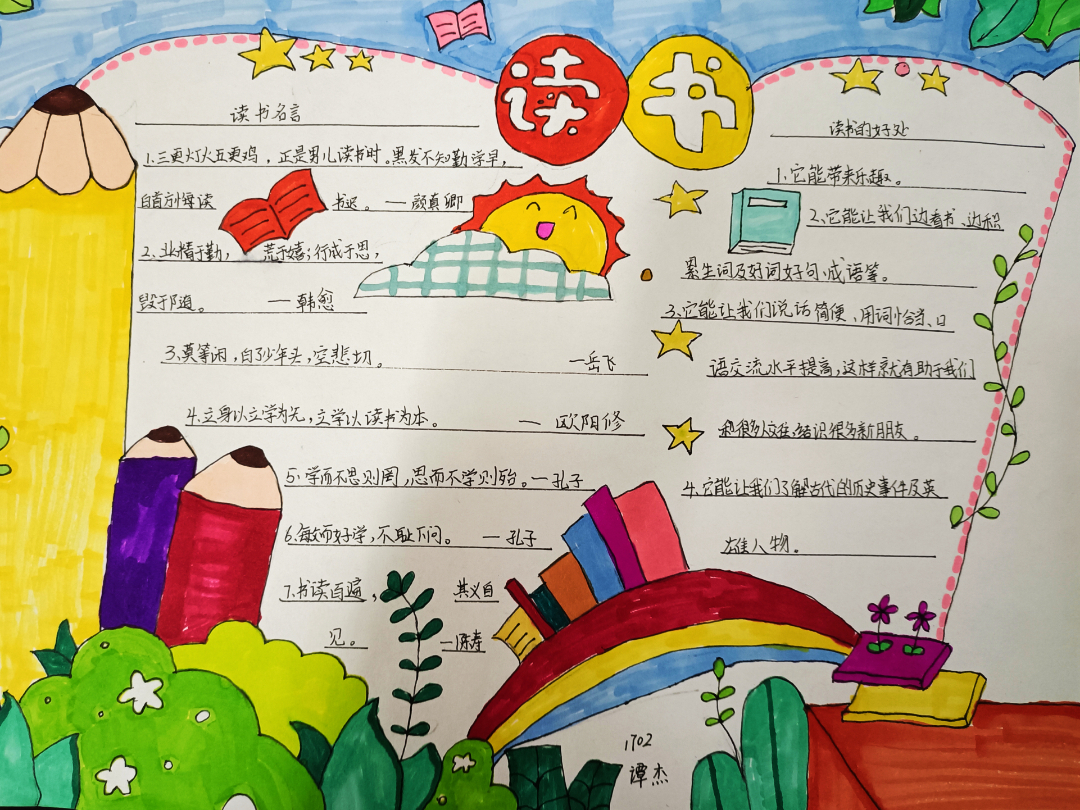 读书
读书名言
1.三更灯火五更鸡，正是男儿读书时。黑发不知勤学早，
白首方悔读书迟。—颜真卿
2、业精于勤，荒于嬉；行成于思，
毁于随。—韩愈
3、莫等闲，白了少年头，空悲切。—岳飞
4、立身以立学为先，立学以读书为本。—欧阳修
5、学而不思则罔，思而不学则殆。—孔子
6、敏而好学，不耻下问。—孔子
7、书读百遍，其义自
见。—陈寿
读书的好处
1、它能带来乐趣。
2、它能让我们边看书、边积
累生词及好词好句、成语等。
3、它能让我们说话简便、用词恰当、口
语交流水平提高，这样就有助于我们
和很多人交往，结识很多新朋友。
4、它能让我们了解古代的历史事件及英
雄人物。
1702
谭杰